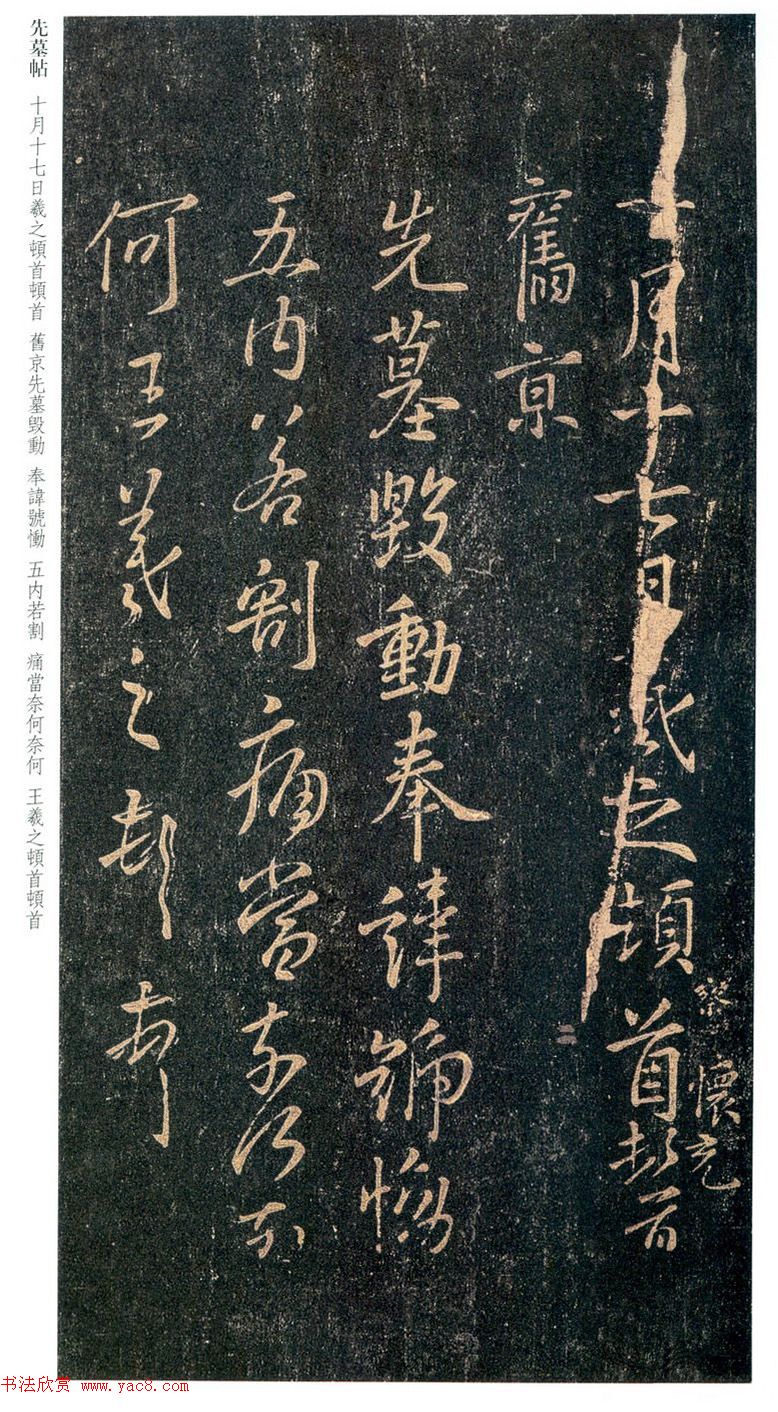 十月十七日羲之頓首頓首
察 懷充
舊京
先墓毀動奉諱號慟
五内若割痛當奈何奈
何王羲之頓首頓首
先墓帖 十月十七日羲之頓首頓首 舊京先墓毀動 奉諱號慟 五内若割 痛當奈何奈何 王羲之頓首頓首
书法欣赏 www.yac8.com